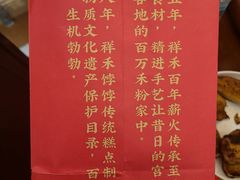 年，祥禾百年薪火传承至
食材，精进手艺让昔日的宫
各地的百万禾粉家中。
年，祥禾饽饽传统糕点制
物质文化遗产保护目录，百
生机勃勃。